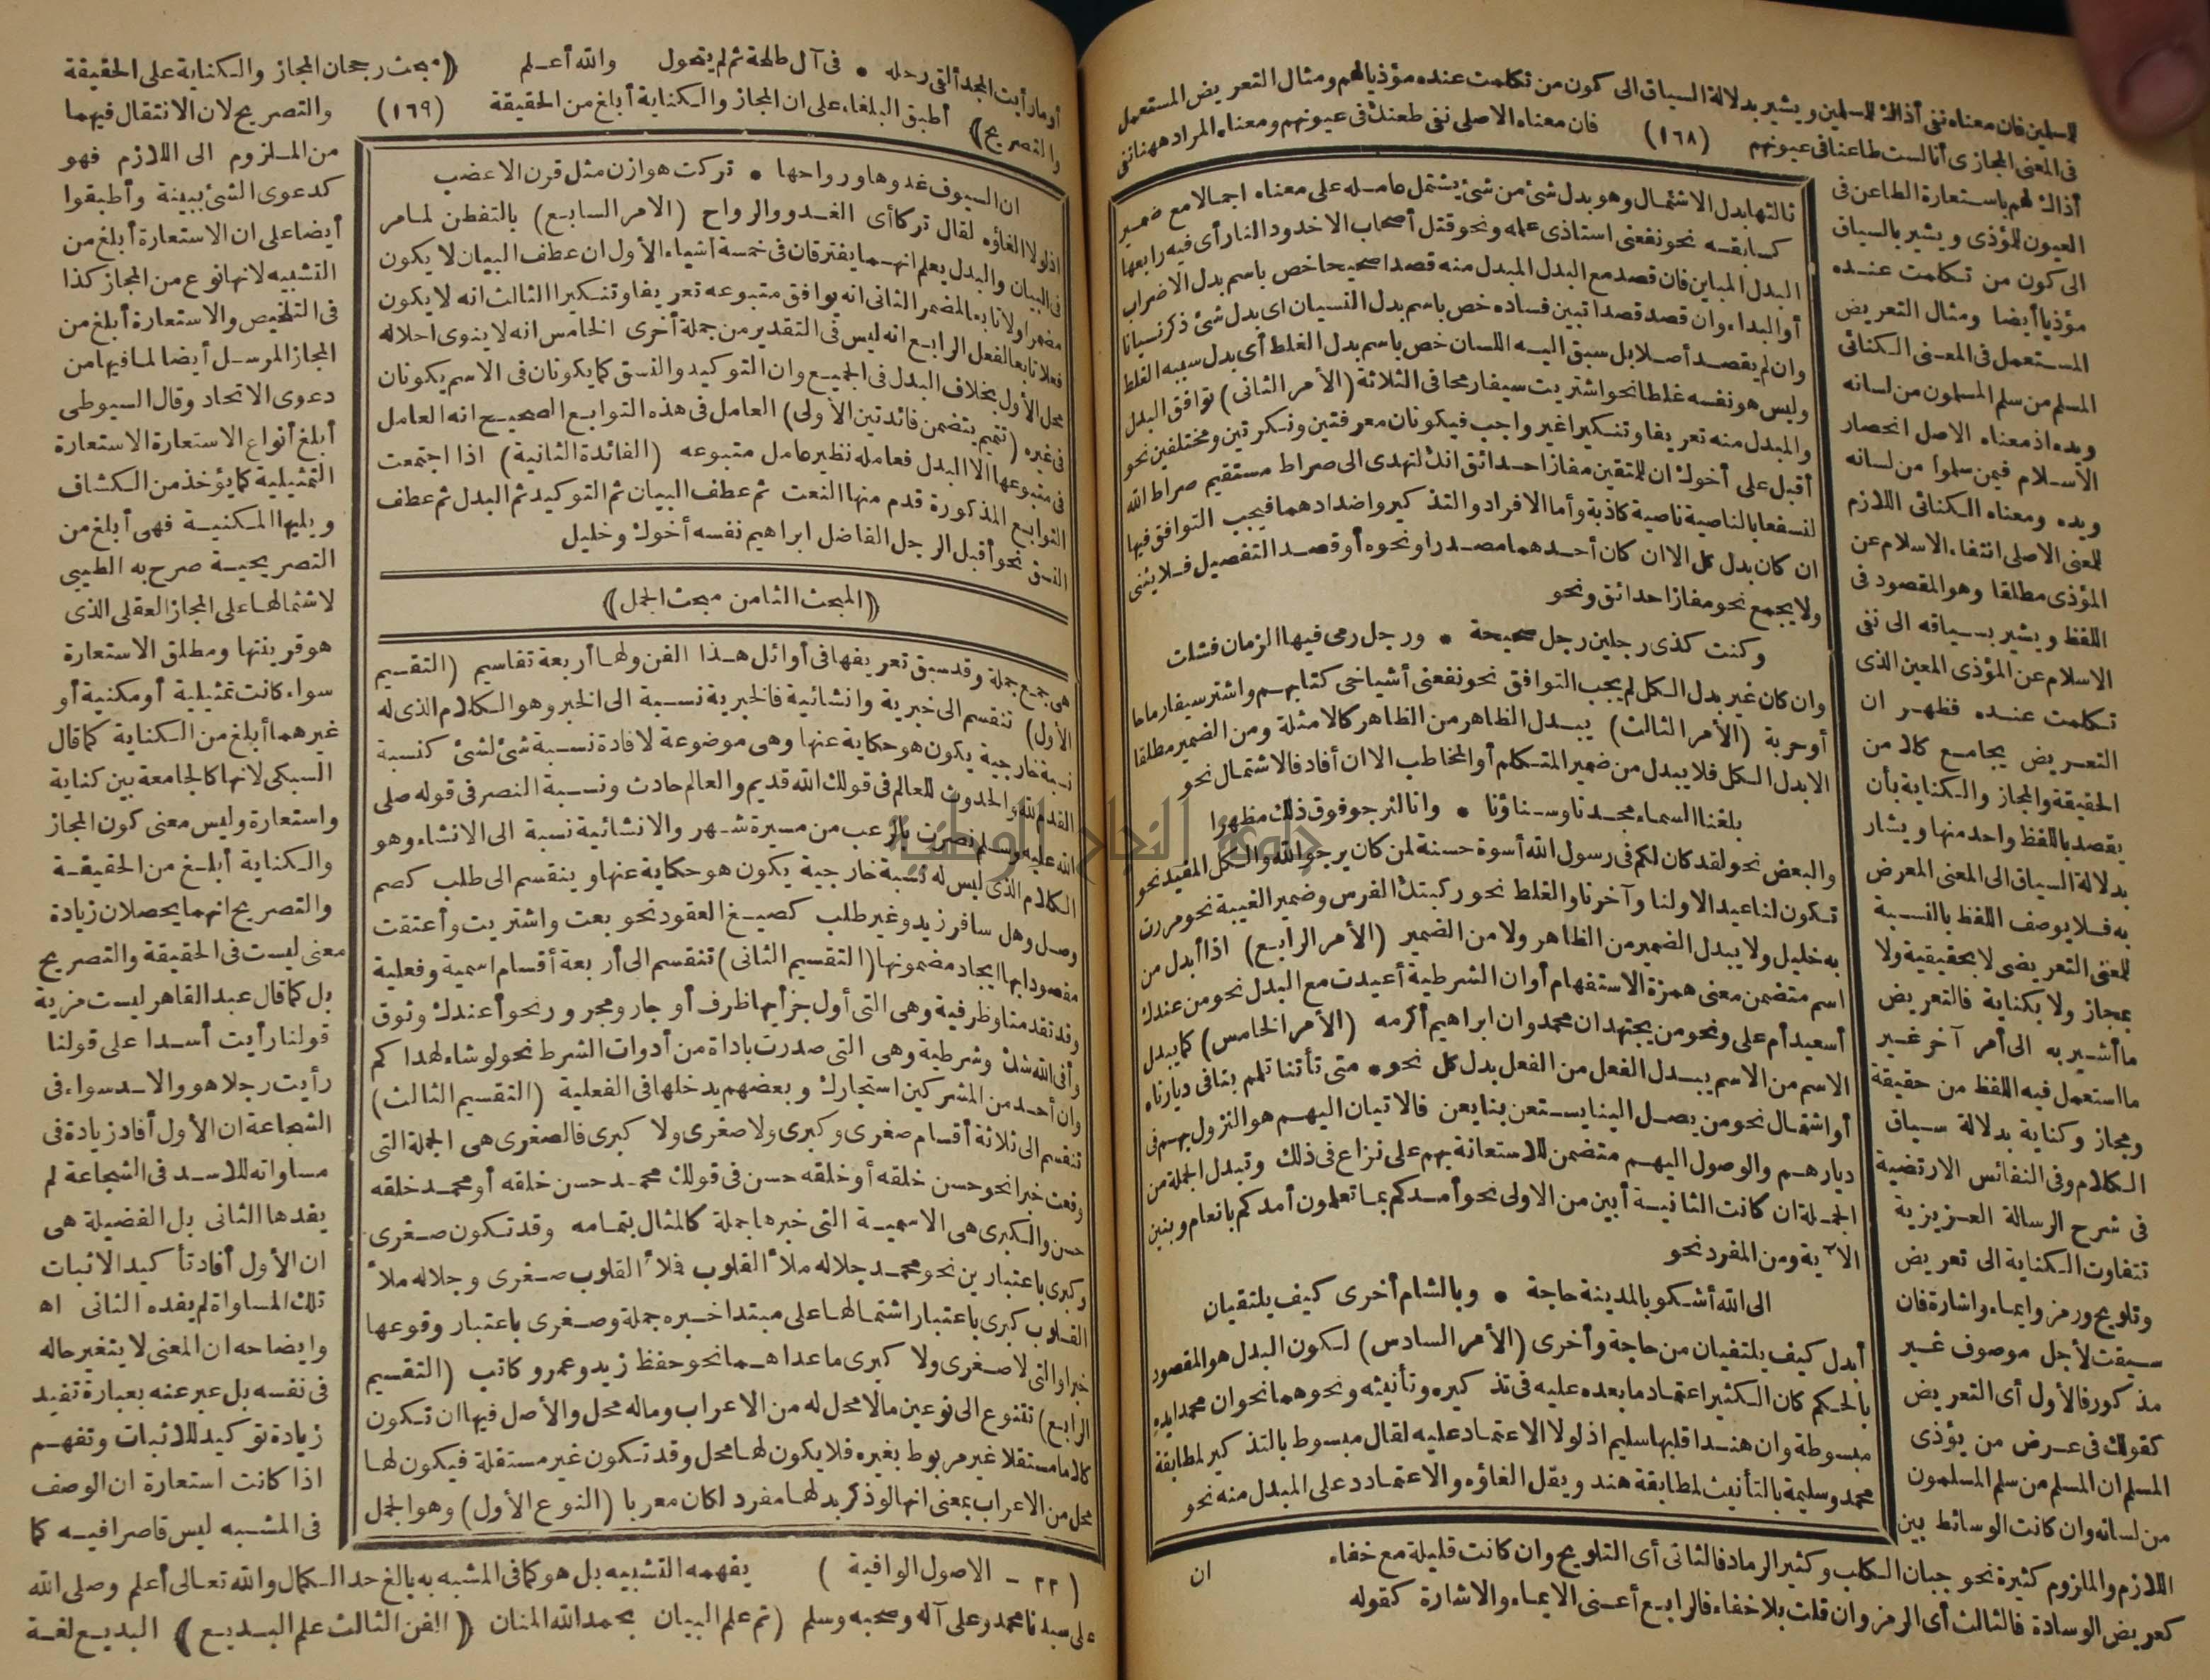 للمسلمين فان معناه نفي أذاك للمسلمين ويشير بدلالة السياق الى كون من تكلمت عنده مؤذيا لهم ومثال التعريض المستعمل
في المعنى المجازى أنا لست طاعنا في عيونهم (١٦٨) فان معناه الاصلى نفي طعنك في عيونهم ومعناه المراد ههنا نفي
أذاك لهم باستعارة الطاعن في
العيون للمؤذى ويشير بالسياق
الى كون من تكلمت عنده
مؤذيا أيضا ومثال التعريض
المستعمل في المعنى الكنائى
المسلم من سلم المسلمون من لسانه
ويده اذ معناه الاصل انحصار
الاسلام فيمن سلموا من لسانه
ويده ومعناه الكنائى اللازم
للمعنى الاصلى انتفاء الاسلام عن
المؤذى مطلقا وهو المقصود في
اللفظ ويشير بسياقه الى نفي
الاسلام عن المؤذى المعين الذى
تكلمت عنده فظهر ان
التعريض يجامع كلا من
الحقيقة والمجاز والكناية بأن
يقصد باللفظ واحد منها ويشار
بدلالة السياق الى المعنى المعرض
به فلا يوصف اللفظ بالنسبة
للمعنى التعريضى لا بحقيقية ولا
بمجاز ولا بكناية فالتعريض
ما أشير به الى أمر آخر غير
ما استعمل فيه اللفظ من حقيقة
ومجاز وكناية بدلالة سياق
الكلام وفي النفائس الارتضية
في شرح الرسالة العزيزية
تتفاوت الكناية الى تعريض
وتلويح ورمز وايماء واشارة فان
سيقت لأجل موصوف غير
مذكور فالأول أى التعريض
كقولك في عرض من يؤذى
المسلم ان المسلم من سلم المسلمون
من لسانه وان كانت الوسائط بين
ثالثها بدل الاشتمال وهو بدل شئ من شئ يشتمل عامله على معناه اجمالا مع ضمير
كسابقه نحو نفعني استاذى علمه ونحو قتل أصحاب الاخدود النار أى فيه رابعها
البدل المباين فان قصد مع البدل المبدل منه قصدا صحيحا خص باسم بدل الاضراب
أو البداء وان قصد قصدا تبين فساده خص باسم بدل النسيان اى بدل شئ ذكر نسيانا
وان لم يقصد أصلا بل سبق اليه اللسان خص باسم بدل الغلط أى بدل سببه الغلط
وليس هو نفسه غلطا نحو اشتريت سيفا رمحا في الثلاثة (الأمر الثانى) توافق البدل
والمبدل منه تعريفا وتنكيرا غير واجب فيكونان معرفتين ونكرتين ومختلفين نحو
أقبل على أخوك ان للمتقين مفازا حدائق انك لتهدى الى صراط مستقيم صراط الله
لنسفعا بالناصية ناصية كاذبة وأما الافراد والتذكير واضدادهما فيجب التوافق فيها
ان كان بدل كل الا ان كان أحدهما مصدرا ونحوه أو قصد التفصيل فلا يثنى
ولا يجمع نحو مفازا حدائق ونحو
وكنت كذى رجلين رجل صحيحة • ورجل رمى فيها الزمان فشلت
وان كان غير بدل الكل لم يجب التوافق نحو نفعني أشياخى كتابهم واشتر سيفا رماحا
أو حربة (الأمر الثالث) يبدل الظاهر من الظاهر كالامثلة ومن الضمير مطلقا
الا بدل الكل فلا يبدل من ضمير المتكلم أو المخاطب الا ان أفاد فالاشتمال نحو
بلغنا السماء مجدنا وسناؤنا • وانا لنرجو فوق ذلك مظهرا
والبعض نحو لقد كان لكم في رسول الله أسوة حسنة لمن كان يرجو الله والكل المفيد نحو
تكون لنا عيدا لاولنا وآخرنا والغلط نحو ركبتك الفرس وضمير الغيبة نحو مررت
به خليل ولا يبدل الضمير من الظاهر ولا من الضمير (الأمر الرابع) اذا أبدل من
اسم متضمن معنى همزة الاستفهام أو ان الشرطية أعيدت مع البدل نحو من عندك
أسعيد أم على ونحو من يجتهد ان محمد وان ابراهيم أكرمه (الأمر الخامس) كما يبدل
الاسم من الاسم يبدل الفعل من الفعل بدل كل نحو • متى تأتنا تلمم بنا في ديارنا
أو اشتمال نحو من يصل الينا يستعن بنا يعن فالاتيان اليهم هو النزول بهم في
ديارهم والوصول اليهم متضمن للاستعانة بهم على نزاع في ذلك وتبدل الجملة من
الجملة ان كانت الثانية أبين من الاولى نحو أمدكم بما تعلمون أمدكم بانعام وبنين
الآية ومن المفرد نحو
الى الله أشكو بالمدينة حاجة • وبالشام أخرى كيف يلتقيان
أبدل كيف يلتقيان من حاجة وأخرى (الأمر السادس) لكون البدل هو المقصود
بالحكم كان الكثير اعتماد ما بعده عليه في تذكيره وتأنيثه ونحوهما نحو ان محمدا يده
مبسوطة وان هندا قلبها سليم اذ لولا الاعتماد عليه لقال مبسوط بالتذكير لمطابقة
محمد وسليمة بالتأنيث لمطابقة هند ويقل الغاؤه والاعتماد على المبدل منه نحو
ان
اللازم والملزوم كثيرة نحو جبان الكلب وكثير الرماد فالثانى أى التلويح وان كانت قليلة مع خفاء
كعريض الوسادة فالثالث أى الرمز وان قلت بلا خفاء فالرابع أعنى الايماء والاشارة كقوله
أو ما رأيت المجد ألقى رحله • في آل طلحة ثم لم يتحول والله أعلم ((مبحث رجحان المجاز والكناية على الحقيقة
والتصريح)) أطبق البلغاء على ان المجاز والكناية أبلغ من الحقيقة (١٦٩) والتصريح لان الانتقال فيهما
من الملزوم الى اللازم فهو
كدعوى الشئ ببينة وأطبقوا
أيضا على ان الاستعارة أبلغ من
التشبيه لانها نوع من المجاز كذا
في التلخيص والاستعارة أبلغ من
المجاز المرسل أيضا لما فيها من
دعوى الاتحاد وقال السيوطى
أبلغ أنواع الاستعارة الاستعارة
التمثيلية كما يؤخذ من الكشاف
ويليها المكنية فهى أبلغ من
التصريحية صرح به الطيبى
لاشتمالها على المجاز العقلى الذى
هو قرينتها ومطلق الاستعارة
سواء كانت تمثيلية أو مكنية أو
غيرهما أبلغ من الكناية كما قال
السبكى لانها كالجامعة بين كناية
واستعارة وليس معنى كون المجاز
والكناية أبلغ من الحقيقة
والتصريح انهما يحصلان زيادة
معنى ليست في الحقيقة والتصريح
بل كما قال عبد القاهر ليست مزية
قولنا رأيت أسدا على قولنا
رأيت رجلا هو والاسد سواء في
الشجاعة ان الأول أفاد زيادة في
مساواته للاسد في الشجاعة لم
يفدها الثانى بل الفضيلة هى
ان الأول أفاد تأكيد الاثبات
تلك المساواة لم يفده الثانى اه
وايضاحه ان المعنى لا يتغير حاله
في نفسه بل عبر عنه بعبارة تفيد
زيادة توكيد للاثبات وتفهم
اذا كانت استعارة ان الوصف
في المشبه ليس قاصرا فيه كما
ان السيوف غدوها ورواحها • تركت هوازن مثل قرن الاعضب
اذ لولا الغاؤه لقال تركا أى الغدو والرواح (الامر السابع) بالتفطن لما مر
في البيان والبدل يعلم انهما يفترقان في خمسة أشياء الأول ان عطف البيان لا يكون
مضمرا ولا تابعا لمضمر الثانى انه يوافق متبوعه تعريفا وتنكيرا الثالث انه لا يكون
فعلا تابعا لفعل الرابع انه ليس في التقدير من جملة أخرى الخامس انه لا ينوى احلاله
محل الأول بخلاف البدل في الجميع وان التوكيد والنسق كما يكونان في الاسم يكونان
في غيره (تتميم يتضمن فائدتين الأولى) العامل في هذه التوابع الصحيح انه العامل
في متبوعها الا البدل فعامله نظير عامل متبوعه (الفائدة الثانية) اذا اجتمعت
التوابع المذكورة قدم منها النعت ثم عطف البيان ثم التوكيد ثم البدل ثم عطف
النسق نحو أقبل الرجل الفاضل ابراهيم نفسه أخوك وخليل
((المبحث الثامن مبحث الجمل))
هى جمع جملة وقد سبق تعريفها في أوائل هذا الفن ولها أربعة تقاسيم (التقسيم
الأول) تنقسم الى خبرية وانشائية فالخبرية نسبة الى الخبر وهو الكلام الذى له
نسبة خارجية يكون هو حكاية عنها وهى موضوعة لافادة نسبة شئ لشئ كنسبة
القدم لله والحدوث للعالم في قولك الله قديم والعالم حادث ونسبة النصر في قوله صلى
الله عليه وسلم نصرت بالرعب من مسيرة شهر والانشائية نسبة الى الانشاء وهو
الكلام الذى ليس له نسبة خارجية يكون هو حكاية عنها وينقسم الى طلب كصم
وصل وهل سافر زيد وغير طلب كصيغ العقود نحو بعت واشتريت وأعتقت
مقصودا بها ايجاد مضمونها (التقسيم الثانى) تنقسم الى أربعة أقسام اسمية وفعلية
وقد تقدمتا وظرفية وهى التى أول جزأيها ظرف أو جار ومجرور نحو أعندك وثوق
وأفى الله شك وشرطية وهى التى صدرت باداة من أدوات الشرط نحو لو شاء لهداكم
وان أحد من المشركين استجارك وبعضهم يدخلها في الفعلية (التقسيم الثالث)
تنقسم الى ثلاثة أقسام صغرى وكبرى ولا صغرى ولا كبرى فالصغرى هى الجملة التى
وقعت خبرا نحو حسن خلقه أو خلقه حسن في قولك محمد حسن خلقه أو محمد خلقه
حسن والكبرى هى الاسمية التى خبرها جملة كالمثال بتمامه وقد تكون صغرى
وكبرى باعتبارين نحو محمد جلاله ملأ القلوب فملأ القلوب صغرى وجلاله ملأ
القلوب كبرى باعتبار اشتمالها على مبتدا خبره جملة وصغرى باعتبار وقوعها
خبرا والتى لا صغرى ولا كبرى ما عداهما نحو حفظ زيد وعمرو كاتب (التقسيم
الرابع) تتنوع الى نوعين ما لا محل له من الاعراب وما له محل والأصل فيها ان تكون
كلاما مستقلا غير مربوط بغيره فلا يكون لها محل وقد تكون غير مستقلة فيكون لها
محل من الاعراب بمعنى انها لو ذكر بدلها مفرد لكان معربا (النوع الأول) وهو الجمل
(٢٢ - الاصول الوافية) يفهمه التشبيه بل هو كما في المشبه به بالغ حد الكمال والله تعالى أعلم وصلى الله
على سيدنا محمد وعلى آله وصحبه وسلم (تم علم البيان بحمد الله المنان ((الفن الثالث علم البديع)) البديع لغة
جامعة النجاح الوطنية